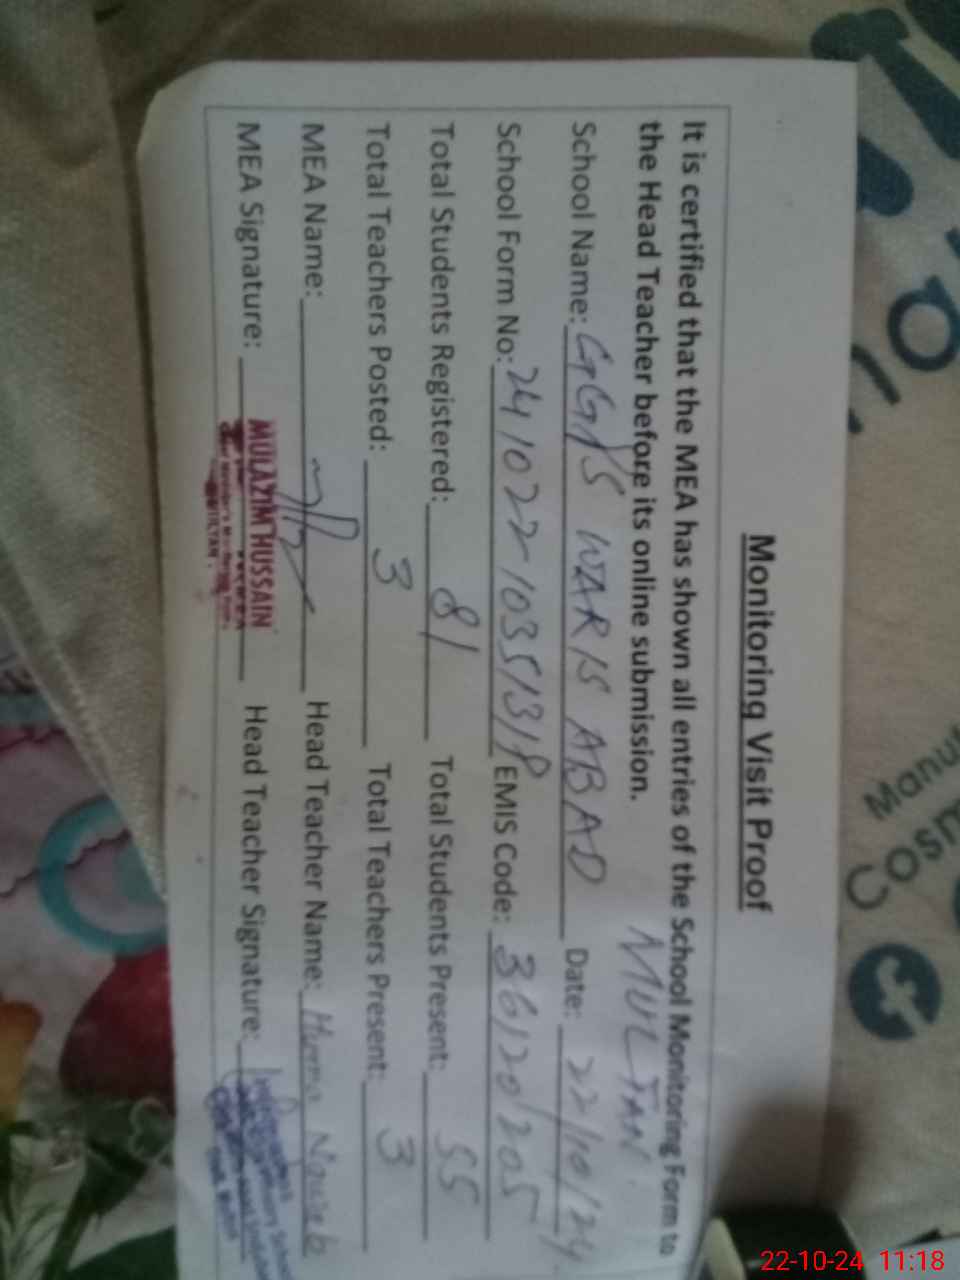 Monitoring Visit Proof
It is certified that the MEA has shown all entries of the School Monitoring Form to
the Head Teacher before its online submission. MULTAN
School Name: GGPS WARIS ABAD Date: 22/10/24
School Form No: 241022-1035131P EMIS Code: 36120205
Total Students Registered: 81 Total Students Present: 55
Total Teachers Posted: 3 Total Teachers Present: 3
MEA Name: Head Teacher Name: Huma
MEA Signature: Head Teacher Signature:
MULAZIM HUSSAIN
MULTAN
Manu
Cosm
22-10-24 11:18